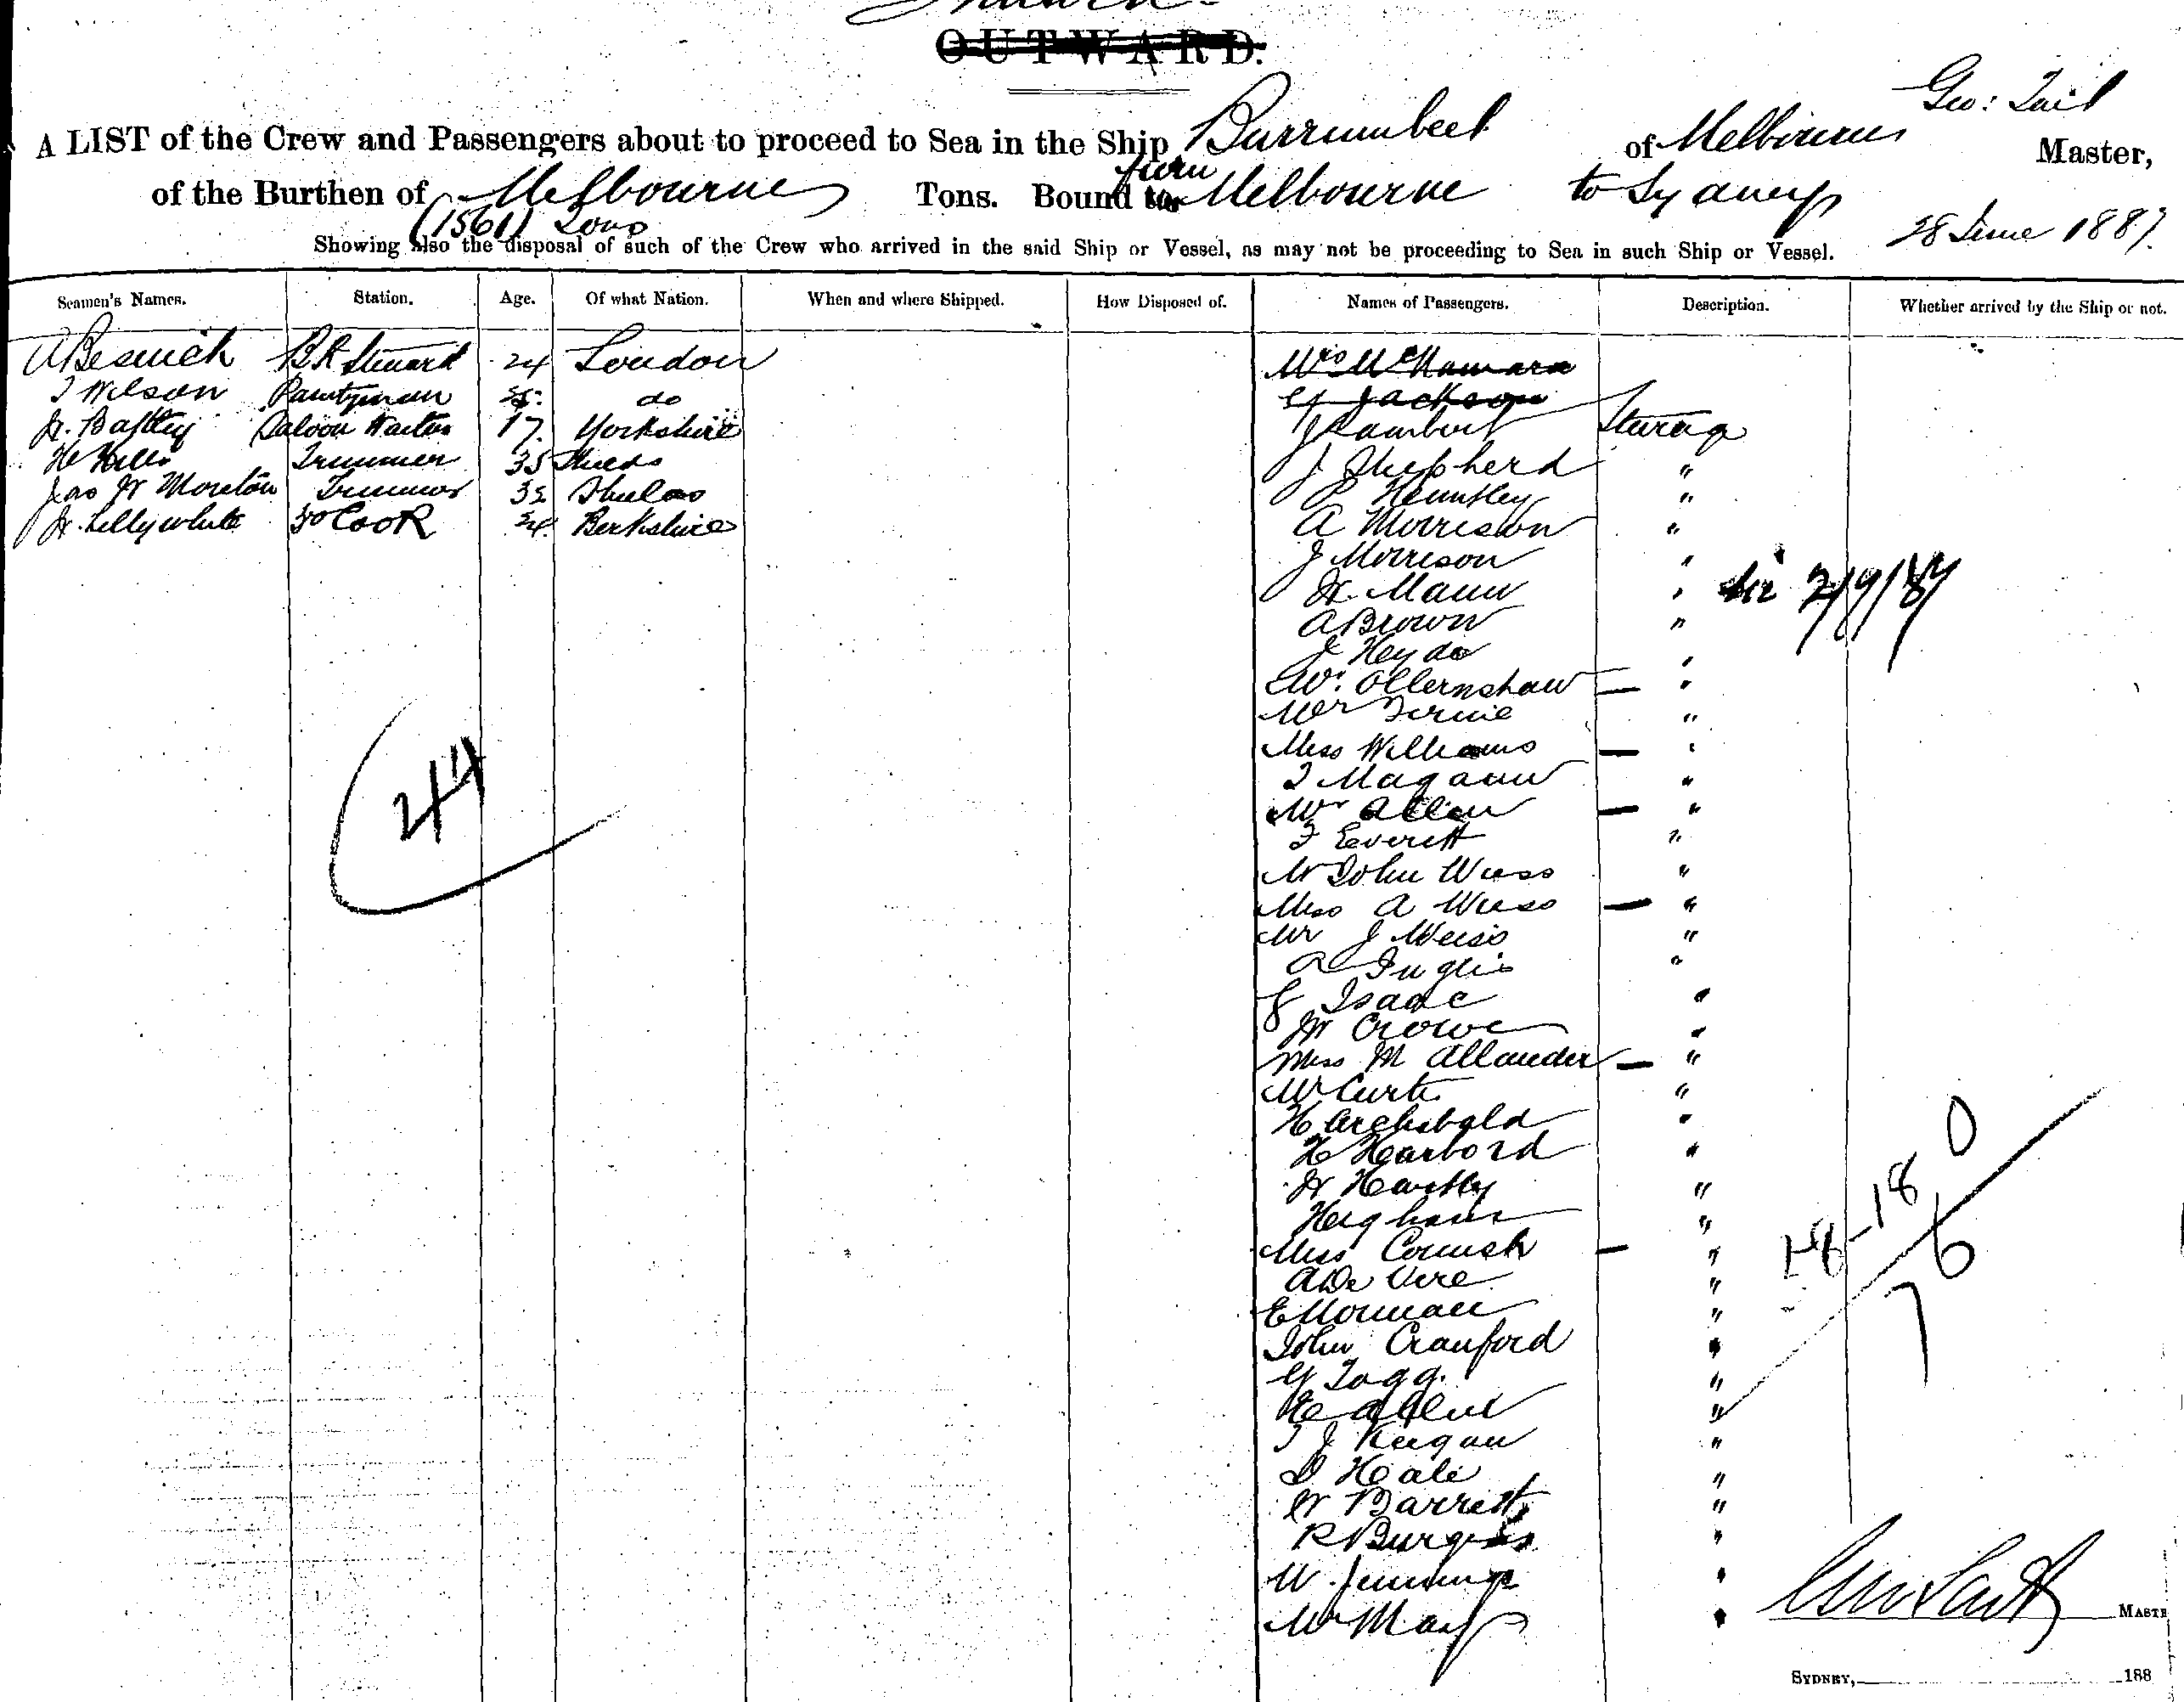 OUTWARD.
Geo: Tait
A LIST of the Crew and Passengers about to proceed to Sea in the Ship Burrumbeet of Melbourne Master,
of the Burthen of Melbourne Tons. Bound from Melbourne to Sydney
(1561) Tons 28 June 1887
Showing also the disposal of such of the Crew who arrived in the said Ship or Vessel, as may not be proceeding to Sea in such Ship or Vessel.
Seamen's Names. Station. Age. Of what Nation. When and where Shipped. How Disposed of. Names of Passengers. Description. Whether arrived by the Ship or not.
A Beswick B R Steward 24 London Mrs McNamara
T Wilson Pantryman do G Jackson
Saloon Waiter 17. Yorkshire J Lambert Steerage
Trimmer 35 Shields J Shepherd "
Jas W Moreton Trimmer Shields P Huntley "
W. Lillywhite Cook 24. Berkshire A Morrison "
J Morrison "
H. Mann "
2/9/87
A Brown "
J Heyde "
W. Ollernshaw — "
Mr Fernie "
Miss Williams — "
T Magann "
Mr Allen — "
44
F Everett "
Mr John Weiss "
Miss A Weiss — "
Mr J Weiss "
A Inglis "
J Isaac "
W Crowe "
Miss M Allander — "
Mr Curtis "
H Archibald "
H Harbord "
W Hartley "
0
18-18
Heighans "
Miss Cornish — "
6
A De Vere "
7
E Mornane "
John Cranford "
G Tagg. "
"
T J Keegan "
D Heale "
W Barrett "
R Burgess "
W. Jennings "
Mr May "
Geo Tait MASTE
SYDNEY, 188